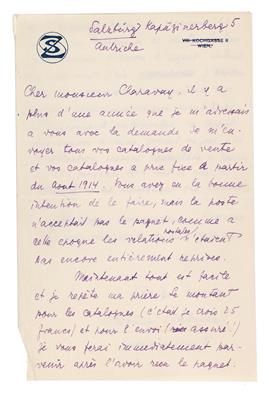 Salzburg Kapuzinerberg 5
Autriche
VIII. KOCHGASSE 8
WIEN
SZ
Cher monsieur Charavay, il y a
plus d'une année que je m'adressais
a vous avec la demande de m'en-
voyer tous vos catalogues de vente
et vos catalogues a prix fixe à partir
du Aout 1914. Vous avez eu la bonne
intention de le faire, mais la poste
n'acceptait pas le paquet, comme a
cette epoque les relations postales n'étaient
pas encore entièrement reprises.
Maintenant tout est facile
et je repète ma prière. Le montant
pour les catalogues (c'était je crois 25
francs) et pour l'envoi (assuré!)
je vous ferai immediatement par-
venir après l'avoir reçu le paquet.